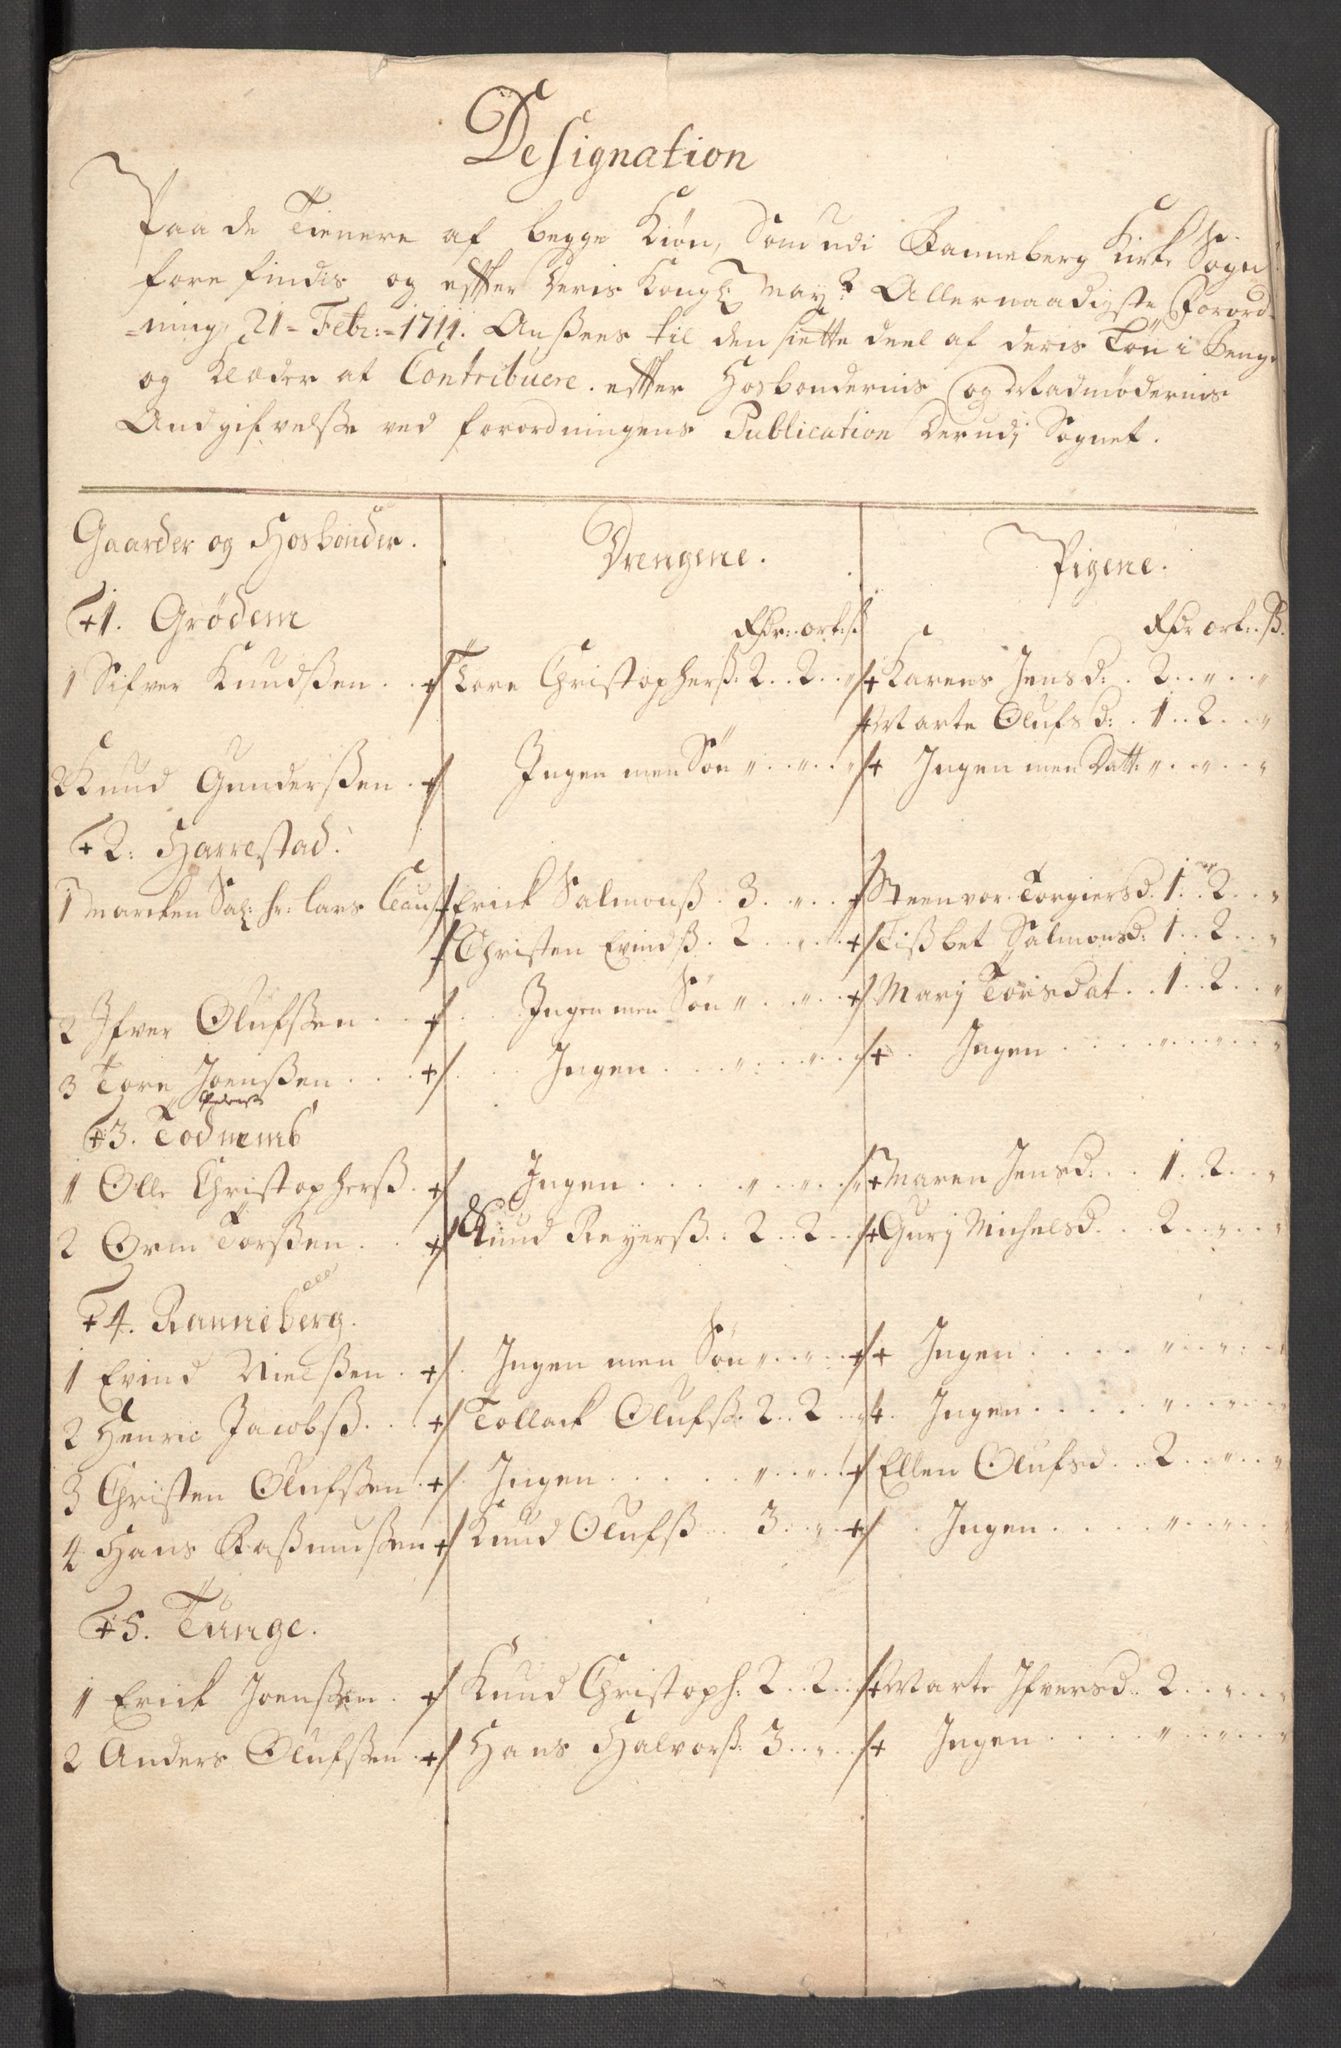 Designation
Paa de Tienere af begge Kiøn, Som udi Ranneberg Kirke Sogn
forefindis og effter Deris Kongl: May: Allernaadigste Forord-
-ning, 21 - Febr: - 1711. Ansees til den siette deel af deris Løn i Penge
og Klæder at Contribuere. effter Hosbondernis og Madmødernis
Andgifvelsse ved forordningens Publication Derudj Sognet.
Gaarder og Hosbonder. Drengene. Pigene.
+1. Grödem Rdr: ort: ß Rdr ort: ß.
1 Sifver Knudßen . + Tore Christophersß. 2 . . 2 . . " + Karens Jensd: . 2 . . " . . "
+ Marte Olufsd: . 1 . . 2 . . "
2 Knud Gunderßen . + Ingen men Søn " . . " . . " + Ingen men Datt: " . . " . . "
+2: Harrestad.
1 Marcken Sal: hr: Lars Claus: + Erick Salmonß . 3 . " . . + Steenvor Torgiersd. 1 . . 2 . . "
+ Christen Evindß . 2 . . " . . + Lißbet Salmonsd: 1 . . 2 . . "
2 Ifver Olufßen . . + Ingen men Søn " . . " . . + Marj Torisdat . . 1 . . 2 . . "
3 Tore Joenßen . . . + Ingen . . . " . . " . . + Ingen . . . " . . " . . "
+3. Todnemb
1 Olle Christophersß . + Ingen . . . . " . . " . . " + Maren Jensd. . . 1 . . 2 . . "
2 Orm Torßen . . + Knud Reyersß . . 2 . . 2 . . + Gurj Michelsd. . . 2 . . " . . "
+4. Ranneberg.
1 Evind Nielßen . + Ingen men Søn " . . " . . + Ingen . . . . " . . " . . "
2 Henric Jacobsß . . + Tollack Olufsß . 2 . . 2 . . " + Ingen . . . . " . . " . . "
3 Christen Olufßen . + Ingen . . . . " . . " . . + Ellen Olufsd . . 2 . . " . . "
4 Hans Raßmußen + Knud Olufsß . . 3 . . " . . + Ingen . . . . " . . " . . "
+5. Tunge.
1 Erick Joenßen . + Knud Christoph: 2 . . 2 . . + Marte Ifversd . . 2 . . " . . "
2 Anders Olufßen . + Hans Halvorsß . 3 . . " . . + Ingen . . . . " . . " . . "